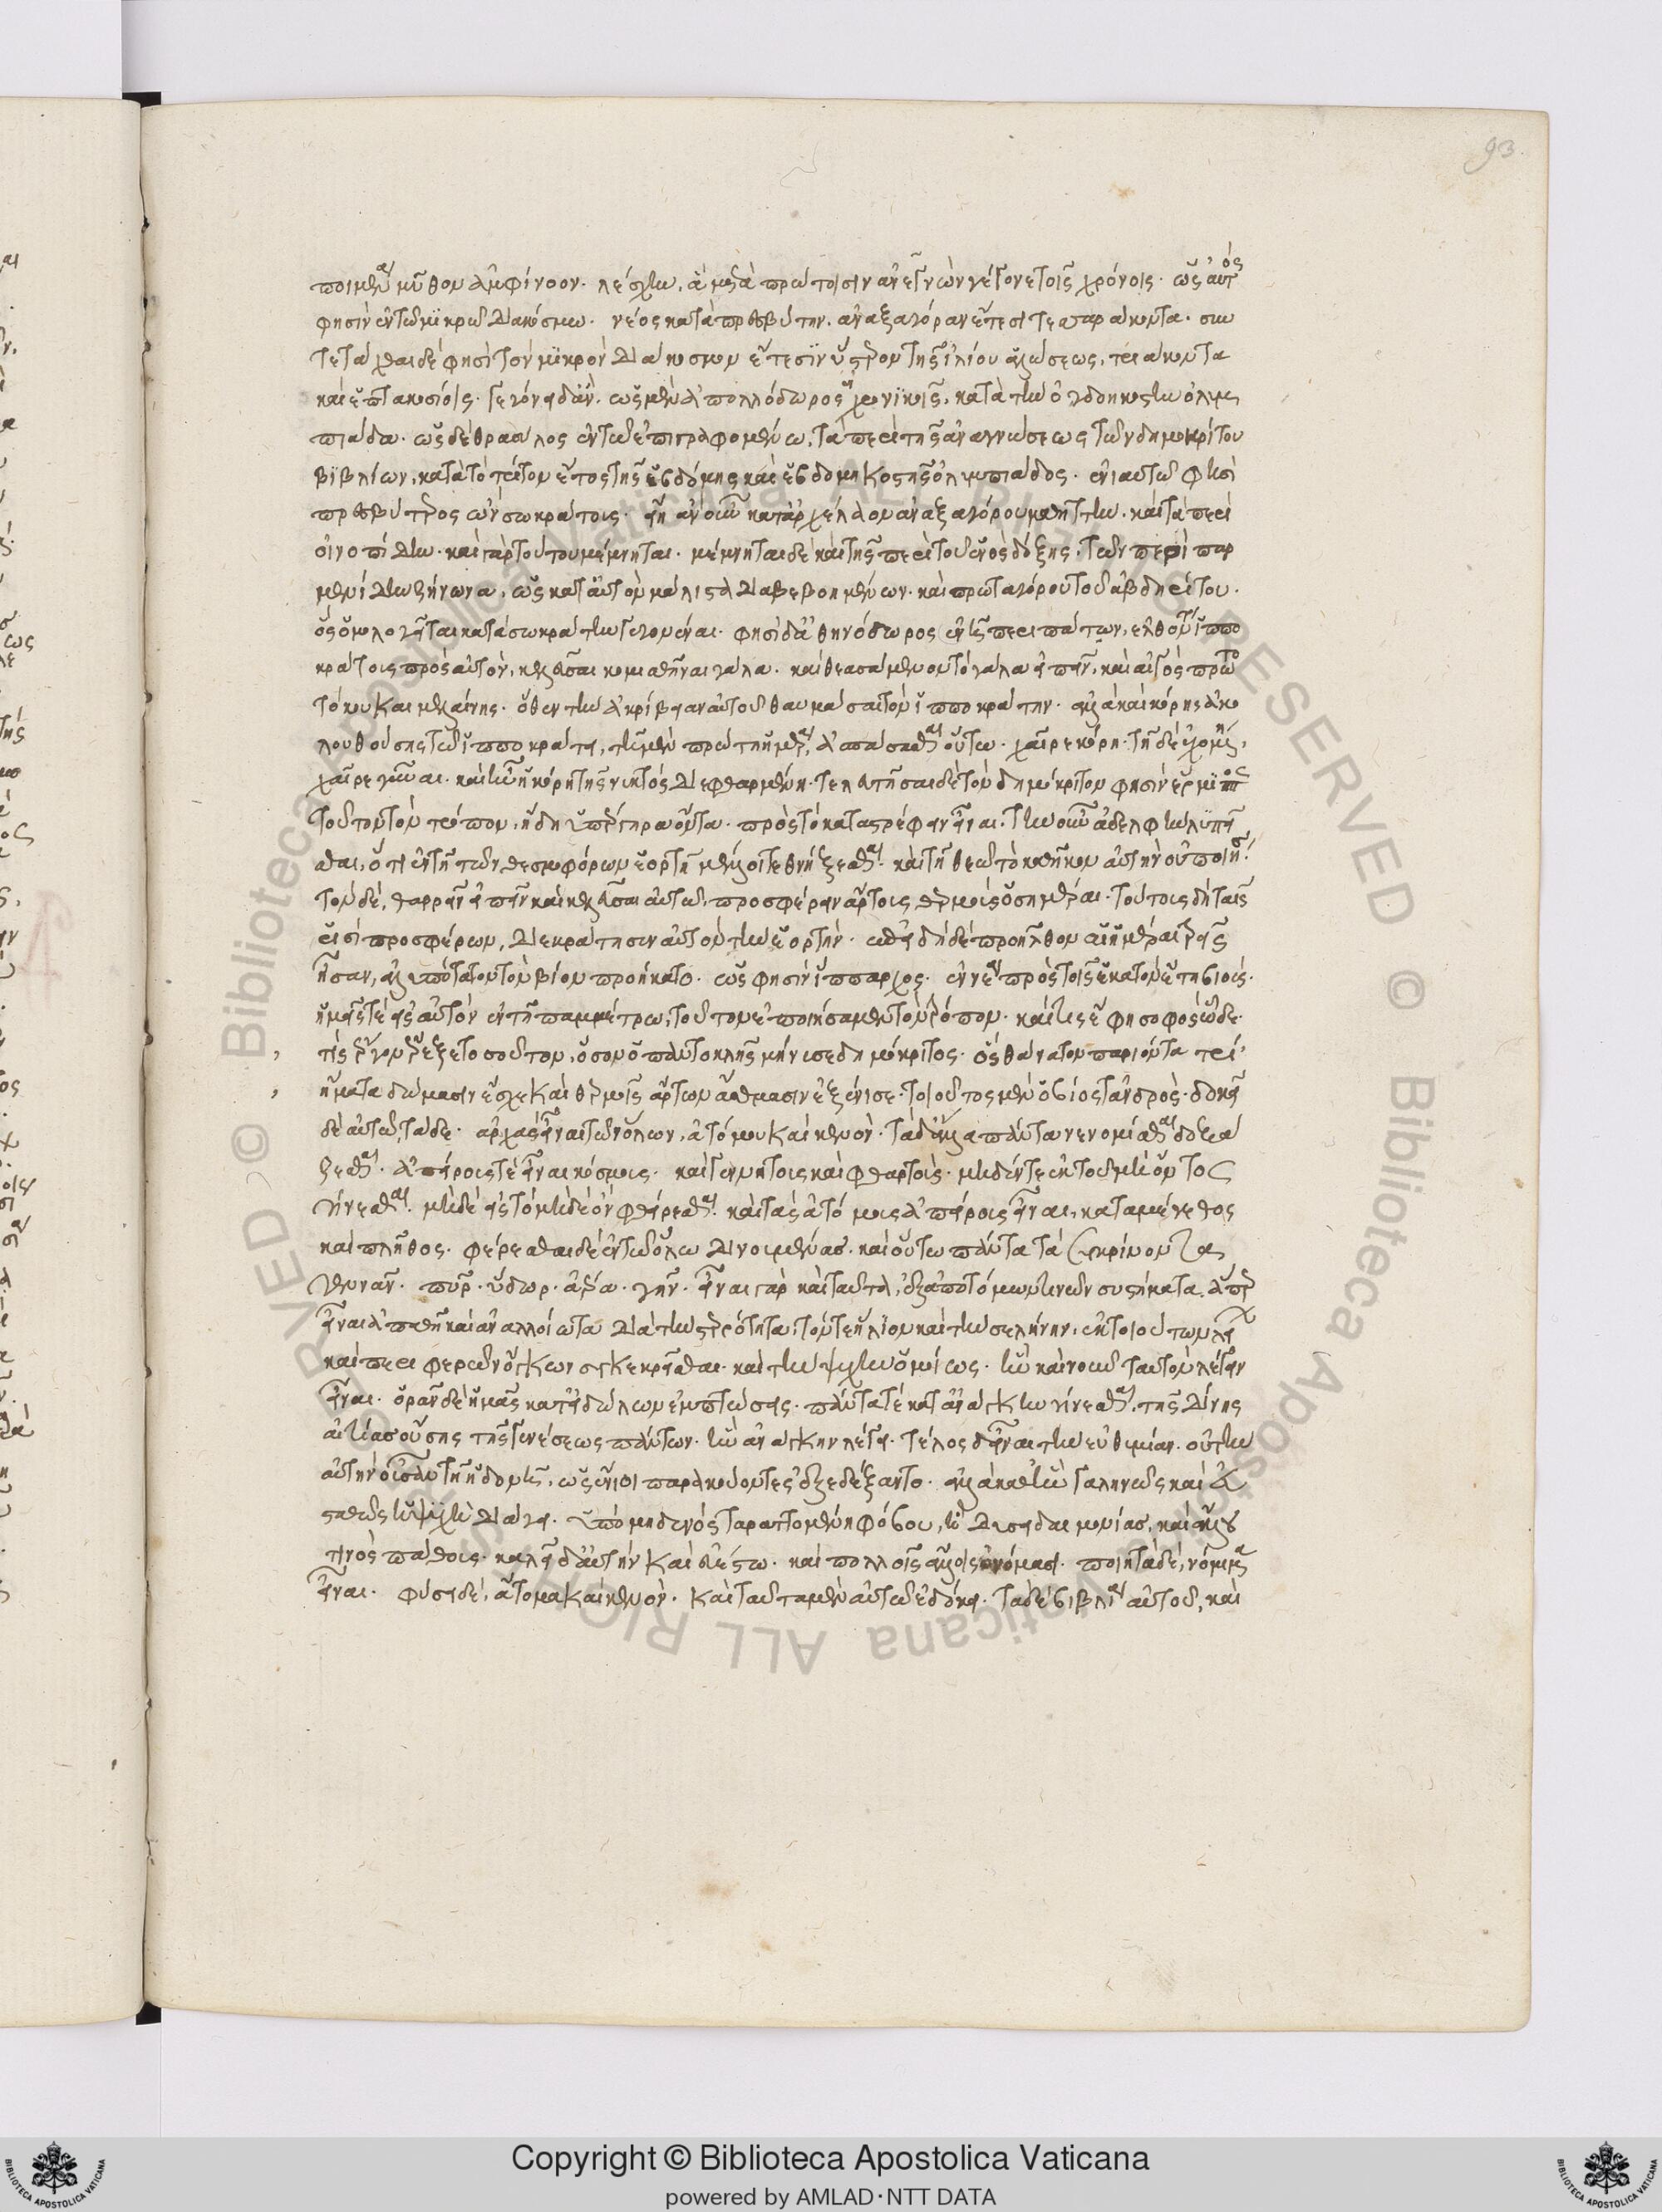 93.
ποιμένα μύθων ἀμφίνοον λέσχην, ὃν μετὰ πρώτοισιν ἀνέγνων γέγονε τοῖς χρόνοις. ὡς αὐτός
φησιν ἐν τῷ μικρῷ διακόσμῳ. νέος κατὰ πρεσβύτην. ἀναξαγόραν ἔτεσι τεσσαράκοντα. συν
τετάχθαι δέ φησι τὸν μικρὸν διάκοσμον ἔτεσιν ὕστερον τῆς ἰλίου ἁλώσεως, τριάκοντα
καὶ ἑπτακοσίοις. γεγόνει δ' ἄν. ὡς μὲν ἀπολλόδωρος ἐν χρονικοῖς, κατὰ τὴν ὀγδοηκοστὴν ὀλυμ
πιάδα. ὡς δὲ θρασύλος ἐν τῷ ἐπιγραφομένῳ, τὰ πρὸ τῆς ἀναγνώσεως τῶν δημοκρίτου
βιβλίων, κατὰ τὸ τρίτον ἔτος τῆς ἑβδόμης καὶ ἑβδομηκοστῆς ὀλυμπιάδος. ἐνιαυτῷ φησὶ
πρεσβύτερος ὢν σωκράτους. εἴη ἂν οὖν κατ' ἀρχέλαον ἀναξαγόρου μαθητὴν. καὶ τὰ περὶ
οἰνοπίδην. καὶ γὰρ τούτου μέμνηται. μέμνηται δὲ καὶ τῆς περὶ τοῦ ἑνὸς δόξης. τῶν περὶ παρ
μενίδην ζήνωνα, ὡς κατ' αὐτὸν μάλιστα διαβεβοημένων. καὶ πρωταγόρου τοῦ ἀβδηρίτου.
ὃς ὁμολογεῖται κατὰ σωκράτην γεγονέναι. φησὶ δ' ἀθηνόδωρος ἐν περιπάτων, ἐλθόντος ἱππο
κράτους πρὸς αὐτὸν, κελεῦσαι κομισθῆναι γάλα. καὶ θεασάμενον τὸ γάλα εἰπεῖν, καὶ αἰγὸς πρωτο
τόκου καὶ μελαίνης. ὅθεν τὴν ἀκρίβειαν αὐτοῦ θαυμάσαι τὸν ἱπποκράτην. ἀλλὰ καὶ κόρης ἀκο
λουθούσης τῷ ἱπποκράτει, τῇ μὲν πρώτῃ ἡμέρᾳ, ἀσπάσασθαι οὕτω. χαῖρε κόρη. τῇ δὲ ἐχομένῃ,
χαῖρε γύναι. καὶ ἦν ἡ κόρη τῆς νυκτὸς διεφθαρμένη. τελευτῆσαι δὲ τὸν δημόκριτον φησὶν ἕρμιππος
τοῦτον τὸν τρόπον. ἤδη ὑπέργηρων ὄντα. πρὸς τὸ καταστρέφειν εἶναι. τὴν οὖν ἀδελφὴν λυπεῖ
σθαι, ὅτι ἐν τῇ τῶν θεσμοφόρων ἑορτῇ μέλλοι τεθνήξεσθαι. καὶ τῇ θεῷ τὸ καθῆκον αὐτὴν οὐ ποιήσει.
τὸν δέ, θαρρεῖν εἰπεῖν καὶ κελεῦσαι αὐτῷ προσφέρειν ἄρτους θερμοὺς ὁσημέραι. τούτους δὴ ταῖς
ῥισὶ προσφέρων, διεκράτησεν αὑτὸν τὴν ἑορτήν. ἐπειδὴ δὲ προῆλθον αἱ ἡμέραι, τρεῖς
ἦσαν, ἀλυπότατον τὸν βίον προήκατο. ὥς φησιν ἵππαρχος. ἐννέα πρὸς τοῖς ἑκατὸν ἔτη βιούς.
ἡμεῖς τε εἰς αὐτὸν ἐν τῇ παμμέτρῳ, τοῦτον ἐποιήσαμεν τὸν τρόπον. καὶ τίς ἔφη σοφὸς ὧδε.
τίς ἔργον ἔρεξε τοσοῦτον, ὅσον ὁ παντοκλῆς μήνισε δημόκριτος. ὃς θάνατον παρεόντα τρί'
ἤματα δώμασιν ἔσχε καὶ θερμοῖς ἄρτων ἄσθμασιν ἐξένισε. τοιοῦτος μὲν ὁ βίος τἀνδρὸς. δοκεῖ
δὲ αὐτῷ τάδε. ἀρχὰς εἶναι τῶν ὅλων, ἀτόμους καὶ κενὸν. τὰ δ' ἄλλα πάντα νενομίσθαι δοξά
ζεσθαι. ἀπείρους τε εἶναι κόσμους. καὶ γεννητοὺς καὶ φθαρτοὺς. μηδέν τε ἐκ τοῦ μὴ ὄντος
γίνεσθαι. μηδὲ εἰς τὸ μηδὲ ὂν φθείρεσθαι. καὶ τὰς ἀτόμους ἀπείρους εἶναι, κατὰ μέγεθος
καὶ πλῆθος. φέρεσθαι δὲ ἐν τῷ ὅλῳ δινουμένας. καὶ οὕτω πάντα τὰ συγκρίνοντα
γεννᾶν. πῦρ. ὕδωρ. ἀέρα. γῆν. εἶναι γὰρ καὶ ταῦτα, ἐξ ἀτόμων τινῶν συστήματα. ἅπερ
εἶναι ἀπαθῆ καὶ ἀναλλοίωτα διὰ τὴν στερρότητα. τόν τε ἥλιον καὶ τὴν σελήνην, ἐκ τοιούτων λείων
καὶ περιφερῶν ὄγκων συγκεκρίσθαι. καὶ τὴν ψυχὴν ὁμοίως. ἣν καὶ νοῦν ταυτὸν λέγειν
εἶναι. ὁρᾶν δὲ ἡμᾶς κατ' εἰδώλων ἐμπτώσεις. πάντα τε κατ' ἀνάγκην γίνεσθαι, τῆς δίνης
αἰτίας οὔσης τῆς γενέσεως πάντων. ἣν ἀνάγκην λέγει. τέλος δ' εἶναι τὴν εὐθυμίαν. οὐ τὴν
αὐτὴν οὖσαν τῇ ἡδονῇ, ὡς ἔνιοι παρακούοντες ἐξεδέξαντο. ἀλλὰ καθ' ἣν γαληνῶς καὶ εὐ
σταθῶς ἡ ψυχὴ διάγει. ὑπὸ μηδενὸς ταραττομένη φόβου, ἢ δεισιδαιμονίας, καὶ ἄλλου
τινὸς πάθους. καλεῖ δ' αὐτὴν καὶ εὐεστὼ. καὶ πολλοῖς ἄλλοις ὀνόμασι. ποιητὰ δέ, νόμιμα
εἶναι. φύσει δέ, ἄτομα καὶ κενὸν. καὶ ταῦτα μὲν αὐτῷ ἐδόκει. τὰ δὲ βιβλία αὐτοῦ, καὶ
Copyright © Biblioteca Apostolica Vaticana
powered by AMLAD·NTT DATA